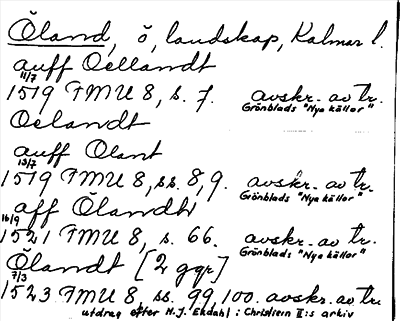 Öland, ö, landskap, Kalmar l.
auff Oellandt
11/7
1519 FMU 8, s. 7. avskr. av tr.
Grönblads "Nya källor"
Oelandt
auff Olant
13/7
1519 FMU 8, ss. 8, 9. avskr. av tr.
Grönblads "Nya källor"
aff Ölandh
16/9
1521 FMU 8, s. 66. avskr. av tr.
Grönblads "Nya källor"
Ölandt [2 ggr]
7/3
1523 FMU 8, ss. 99, 100. avskr. av tr.
utdrag efter N.J. Ekdahl: Christiern II:s arkiv